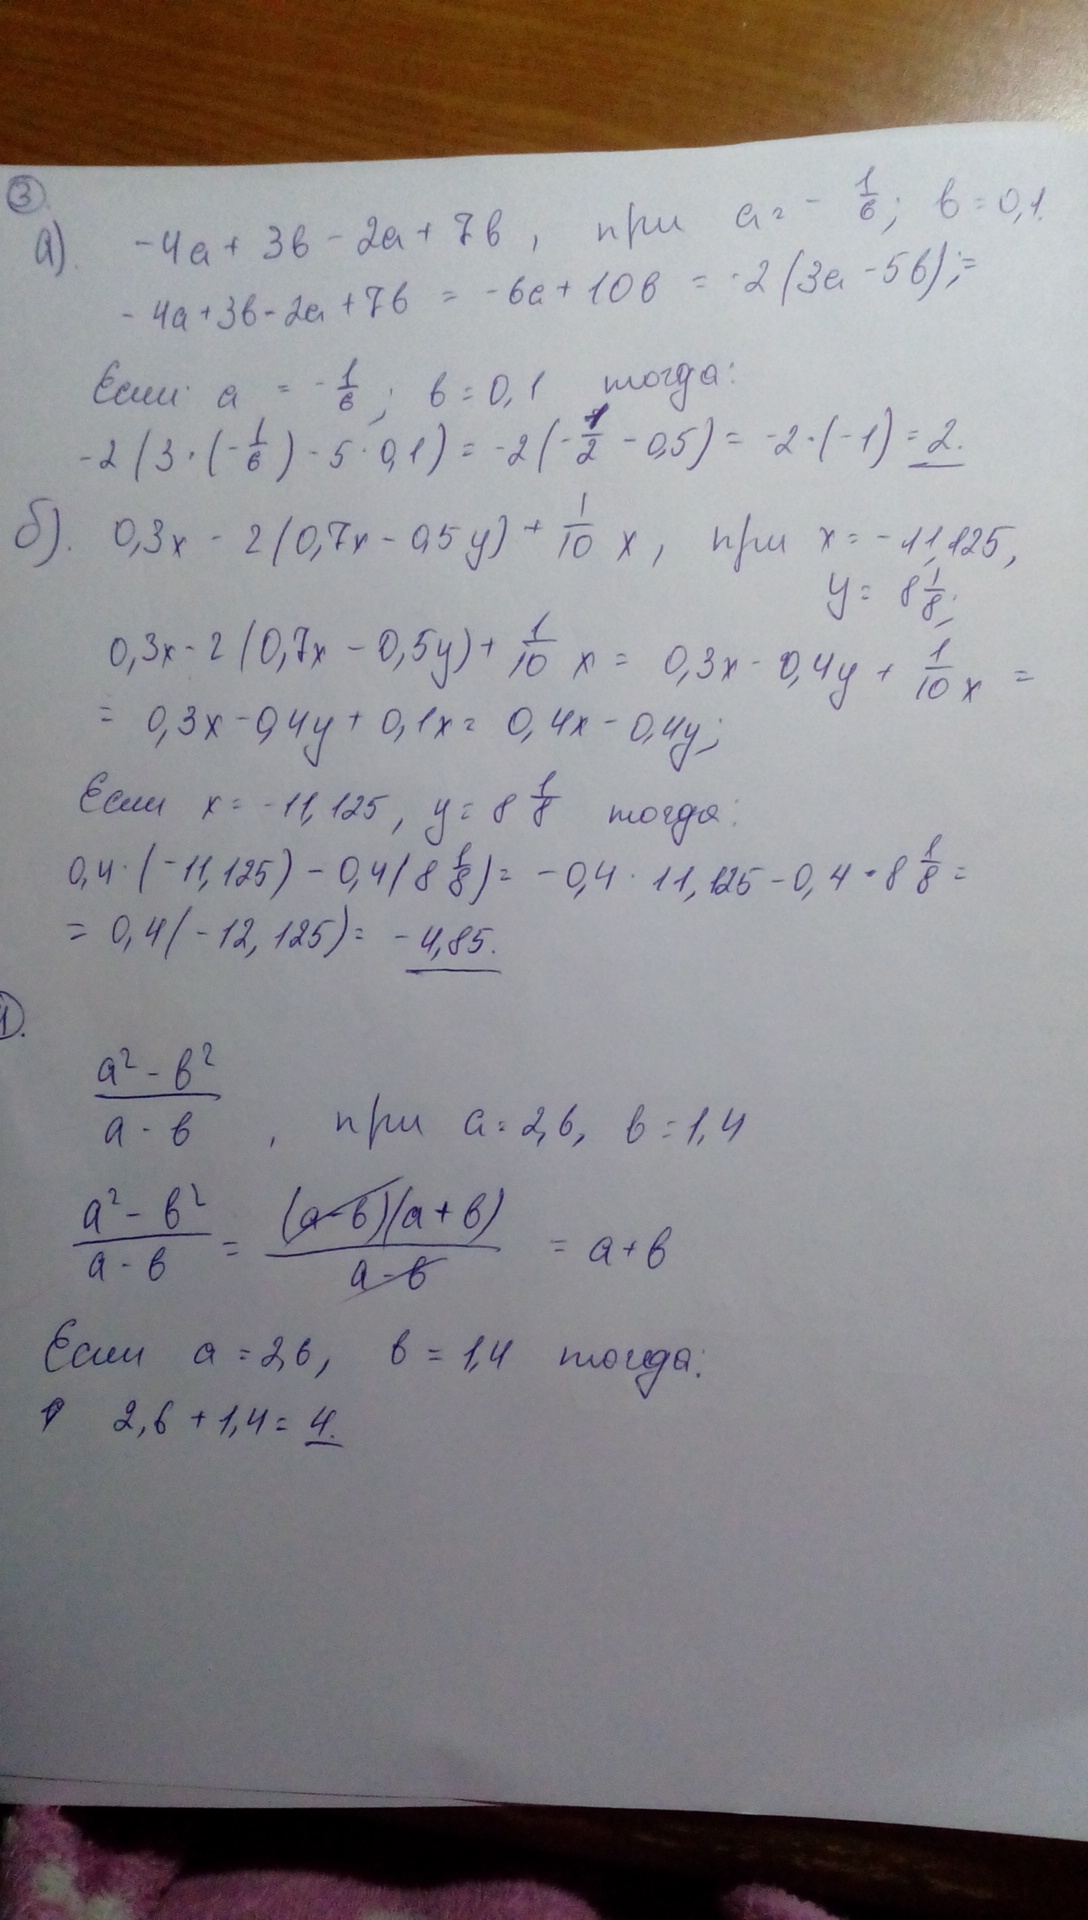 ③.
а). -4a + 3в - 2a + 7в, при a = - 1/6; в = 0,1.
- 4a + 3в - 2a + 7в = -6a + 10в = -2 (3a - 5в);=
Если a = - 1/6; в = 0,1 тогда:
-2 (3 · (- 1/6) - 5 · 0,1) = -2 (- 1/2 - 0,5) = -2 · (-1) = 2.
б). 0,3x - 2 (0,7x - 0,5y) + 1/10 x, при x = -11,125,
y = 8 1/8;
0,3x - 2 (0,7x - 0,5y) + 1/10 x = 0,3x - 0,4y + 1/10 x =
= 0,3x - 0,4y + 0,1x = 0,4x - 0,4y;
Если x = -11,125, y = 8 1/8 тогда:
0,4 · (-11,125) - 0,4 (8 1/8) = -0,4 · 11,125 - 0,4 · 8 1/8 =
= 0,4 (-12,125) = -4,85.
a² - в² / a - в , при a = 2,6, в = 1,4
a² - в² / a - в = (a - в)(a + в) / a - в = a + в
Если a = 2,6, в = 1,4 тогда:
2,6 + 1,4 = 4.